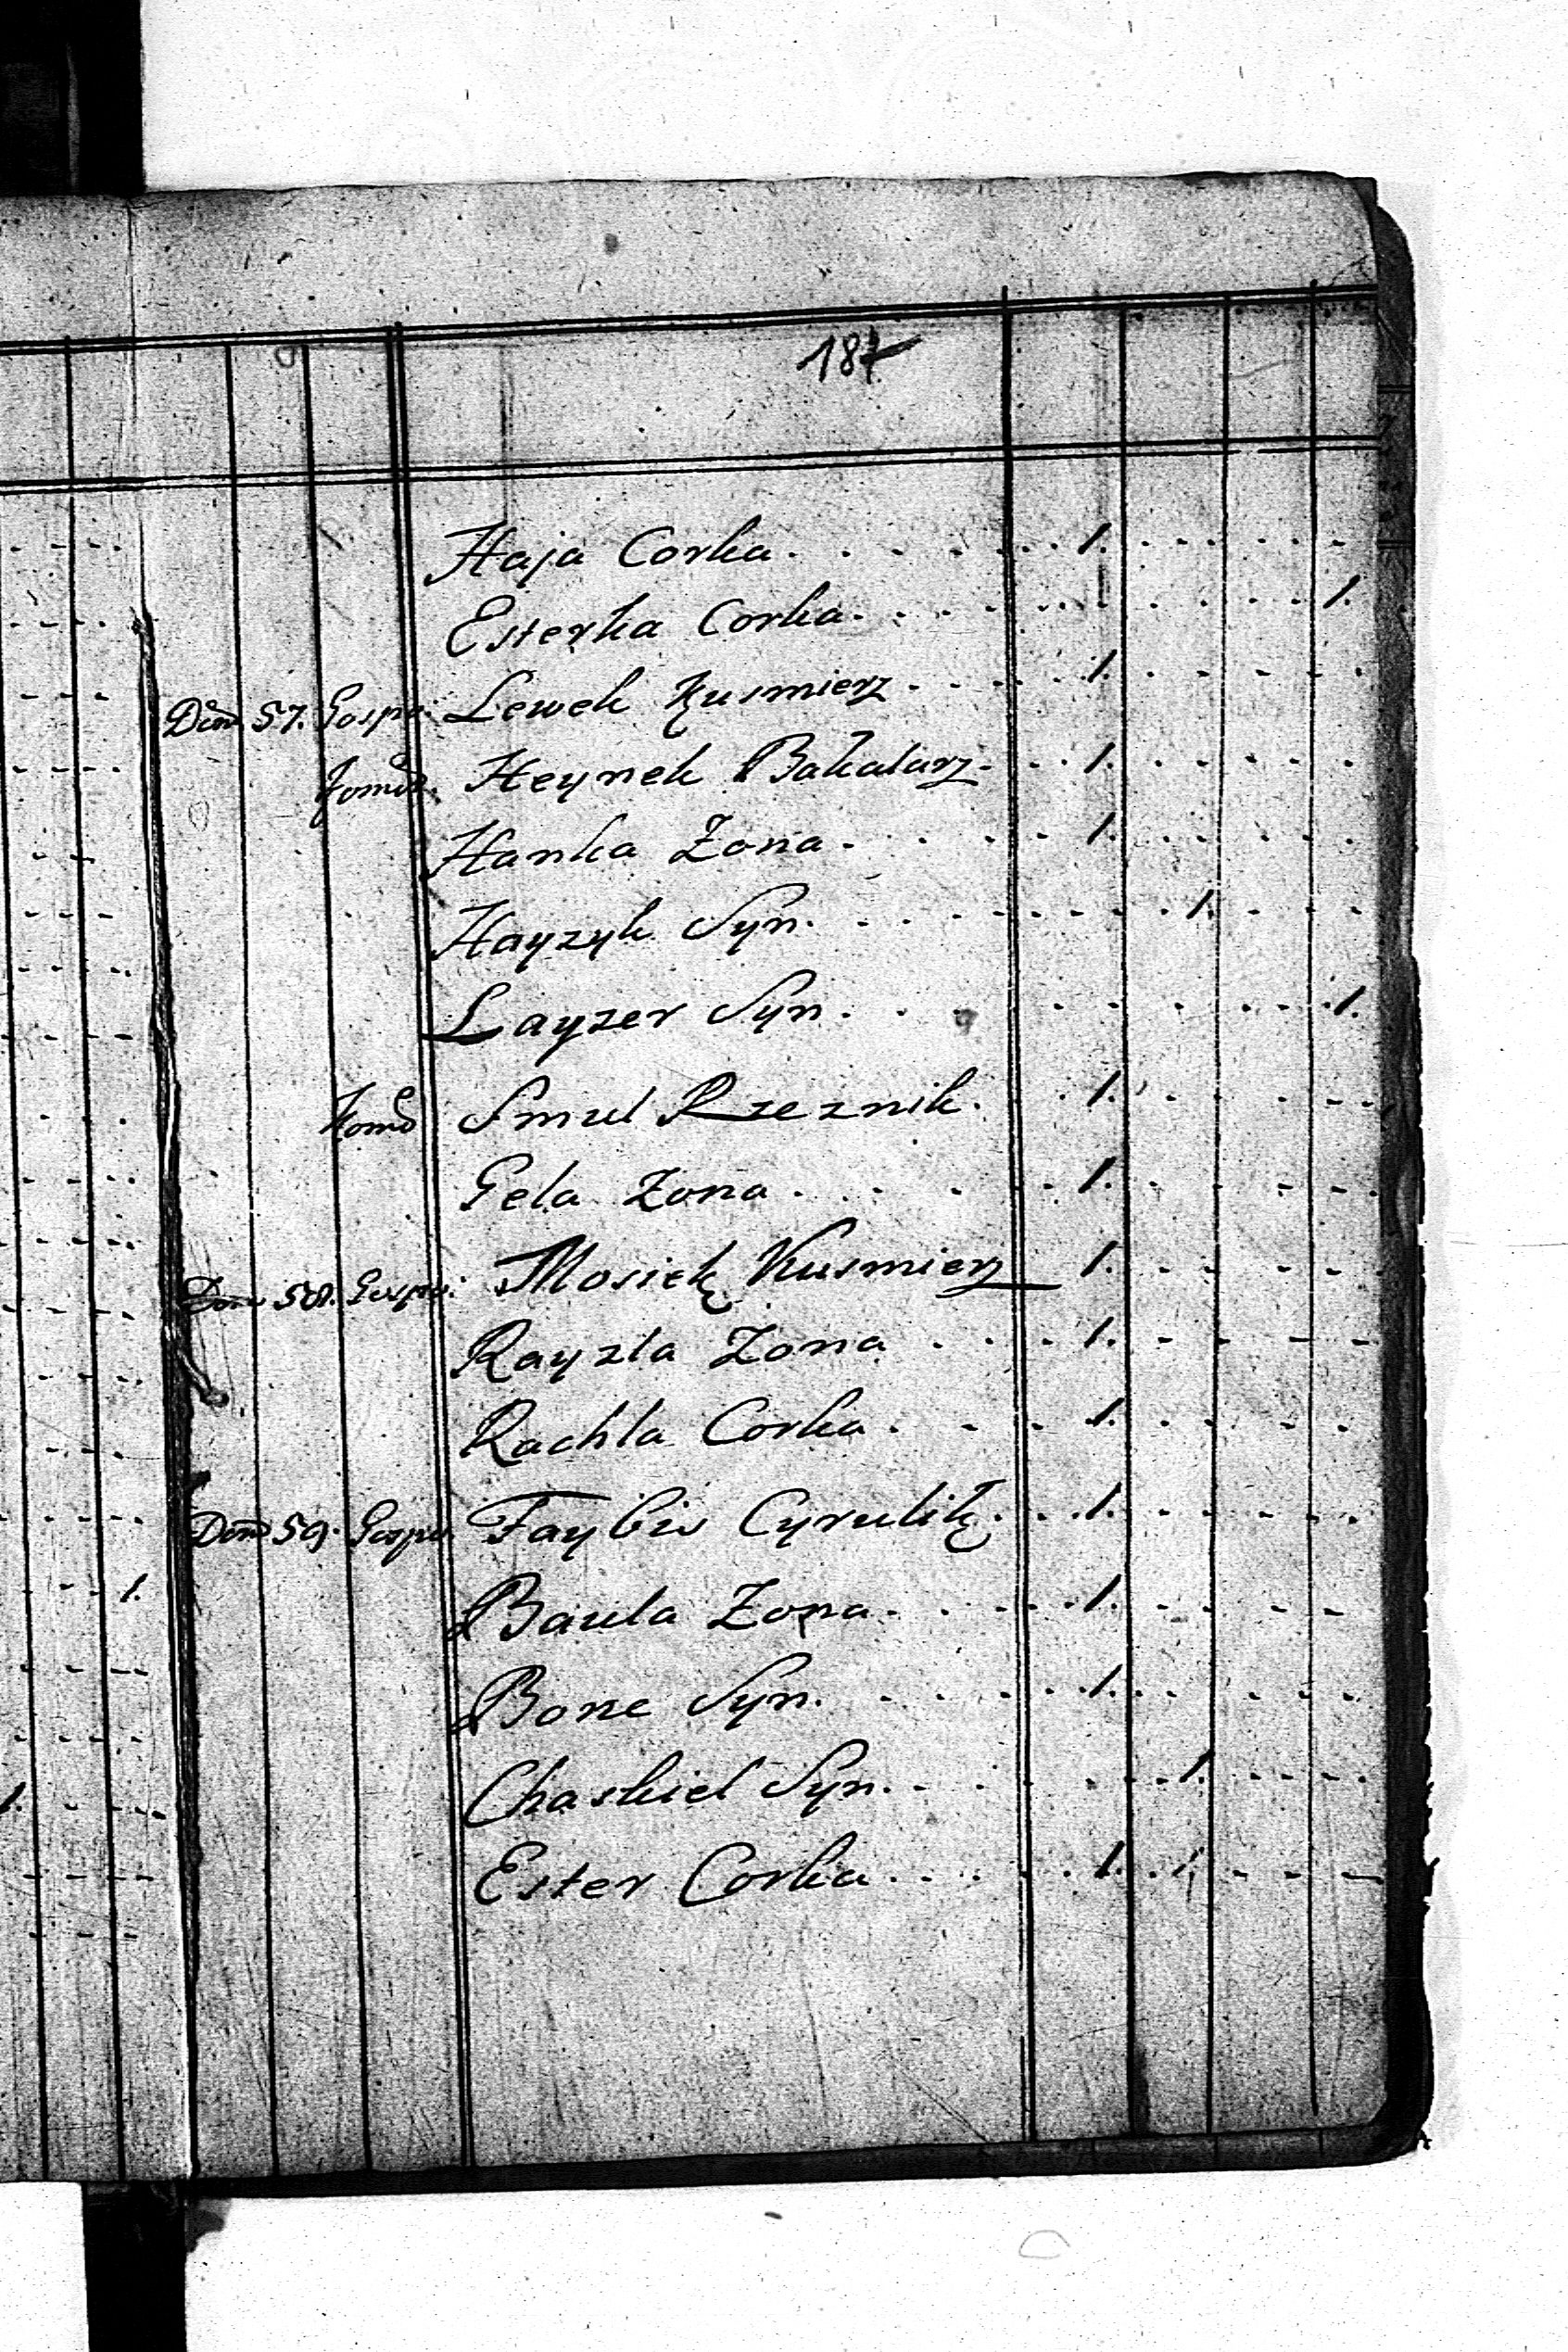 187
Haja Corka . . . . . . . 1. . . . . . . .
Esterka Corka . . . . . . . . . . . . 1.
Dom 57. Gospo: Lewek Kusmierz . . . . 1. . . . . .
Komor. Heynek Bakalarz . . . 1. . . . . .
Hanka Zona . . . . . 1. . . . . .
Hayzyk Syn . . . . . . . . . 1. . . . .
Layzer Syn . . . . . . . . . . . 1.
Komo Smul Rzeznik . . . 1. . . . . .
Gela Zona . . . . . 1. . . . . .
Dom 58. Gospo: Mosiek Kusmierz 1. . . . . .
Rayzla Zona . . . . 1. - - - -
Rachla Corka . . . . 1. . . . . .
Dom 59. Gospo. Faybis Cyrulik . . . 1. . . . . .
Baula Zona . . . . . 1. . . . - -
Bone Syn . . . . . . 1. . . . . . .
Chaskiel Syn . . . . . . . 1. . . . .
Ester Corka . . . . . . 1. . 1. - - - -
1.
1.